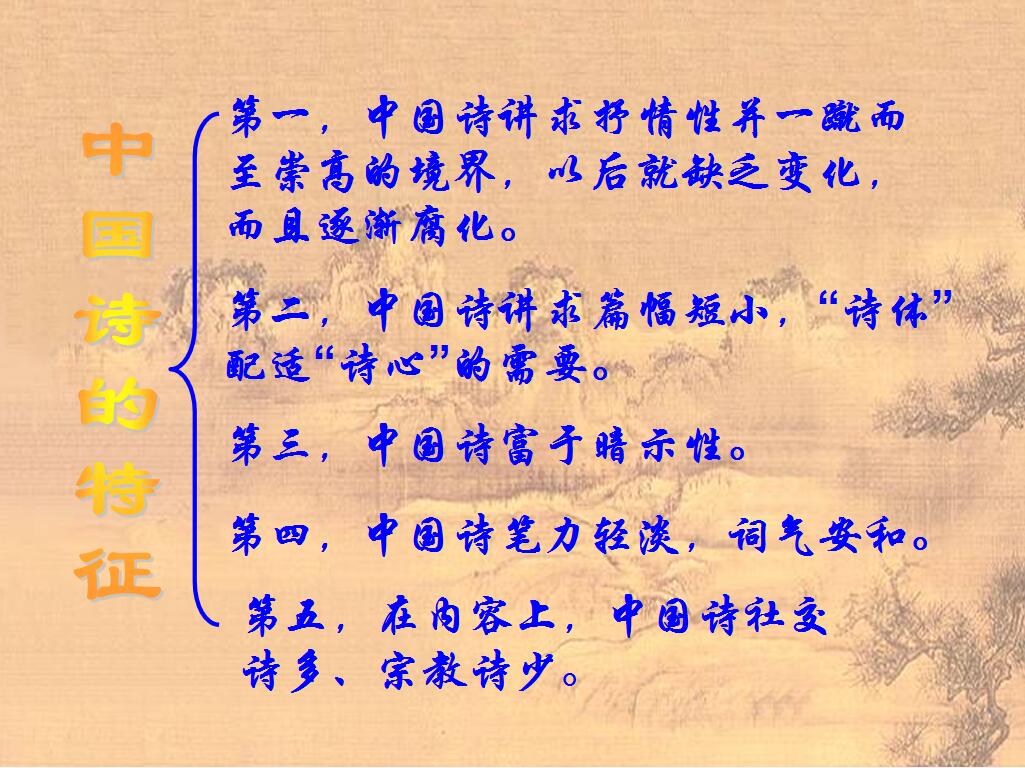 中国诗的特征
第一，中国诗讲求抒情性并一蹴而
至崇高的境界，以后就缺乏变化，
而且逐渐腐化。
第二，中国诗讲求篇幅短小，“诗体”
配适“诗心”的需要。
第三，中国诗富于暗示性。
第四，中国诗笔力轻淡，词气安和。
第五，在内容上，中国诗社交
诗多、宗教诗少。